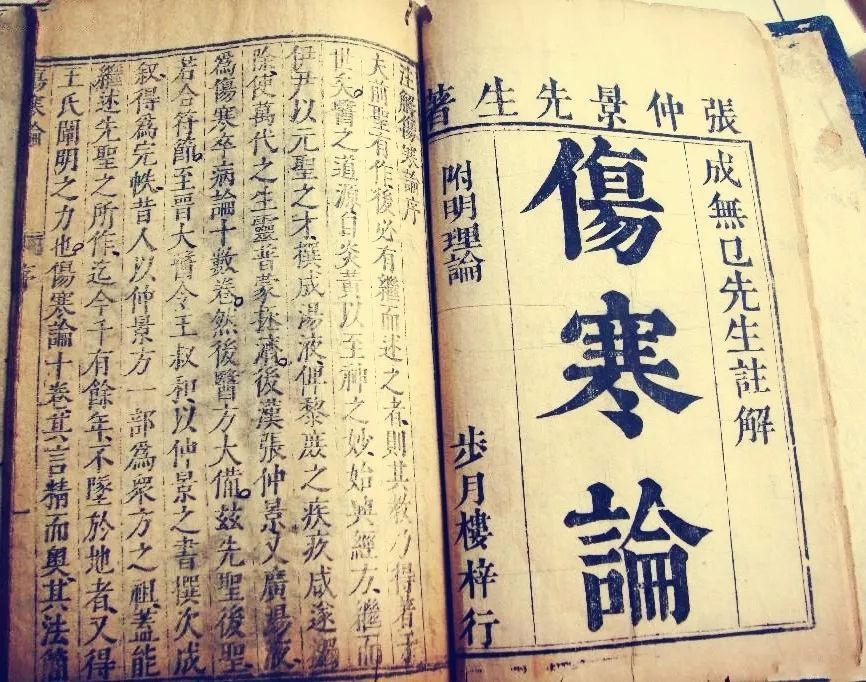 張仲景先生著
成無已先生註解
傷寒論
附明理論
步月樓梓行
注解傷寒論序
夫前聖有作後必有繼而述之者則其教乃得著于
世矣。醫之道源自炎黃以至神之妙始興經方繼而
伊尹以元聖之才撰成湯液俾黎庶之疾疢咸遂蠲
除使萬代之生靈普蒙拯濟。後漢張仲景又廣湯液
為傷寒卒病論十數卷。然後醫方大備。茲先聖後聖
若合符節。至晉大醫令王叔和以仲景之書撰次成
叙得為完帙昔人以仲景方一部為眾方之祖蓋能
繼述先聖之所作迄今千有餘年不墜於地者又得
王氏闡明之力也。傷寒論十卷其言精而奧其法簡
傷寒論
序